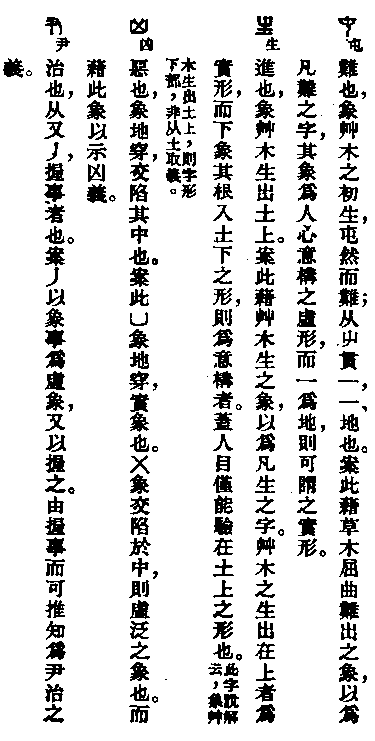 屯 難也，象艸木之初生，屯然而難；从屮貫一，一、地也。案此藉草木屈曲難出之象，以爲
凡難之字，其象爲人心意構之虛形，而一爲地，則可謂之實形。
生 進也，象艸木生出土上。案此藉艸木生之象，以爲凡生之字。艸木之生出在上者爲
實形，而下象其根入土下之形，則爲意構者。蓋人目僅能驗在土上之形也。此字說解
云，象艸
木生出土上，則字形
下部，非从土取義。
凶 惡也，象地穿，交陷其中也。案此凵象地穿，實象也。㐅象交陷於中，則虛泛之象也。而
藉此象以示凶義。
尹 治也，从又丿，握事者也。案丿以象事爲虛象，又以握之。由握事而可推知爲尹治之
義。